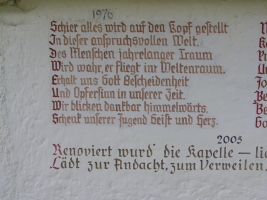 1976
Schier alles wird auf den Kopf gestellt
In dieser anspruchsvollen Welt.
Des Menschen jahrelanger Traum
Wird wahr, er fliegt im Weltenraum.
Erhalt uns Gott Bescheidenheit
Und Opfersinn in unserer Zeit.
Wir blicken dankbar himmelwärts.
Schenk unserer Jugend Geist und Herz.
2005
Renoviert wurd' die Kapelle –
Lädt zur Andacht, zum Verweilen